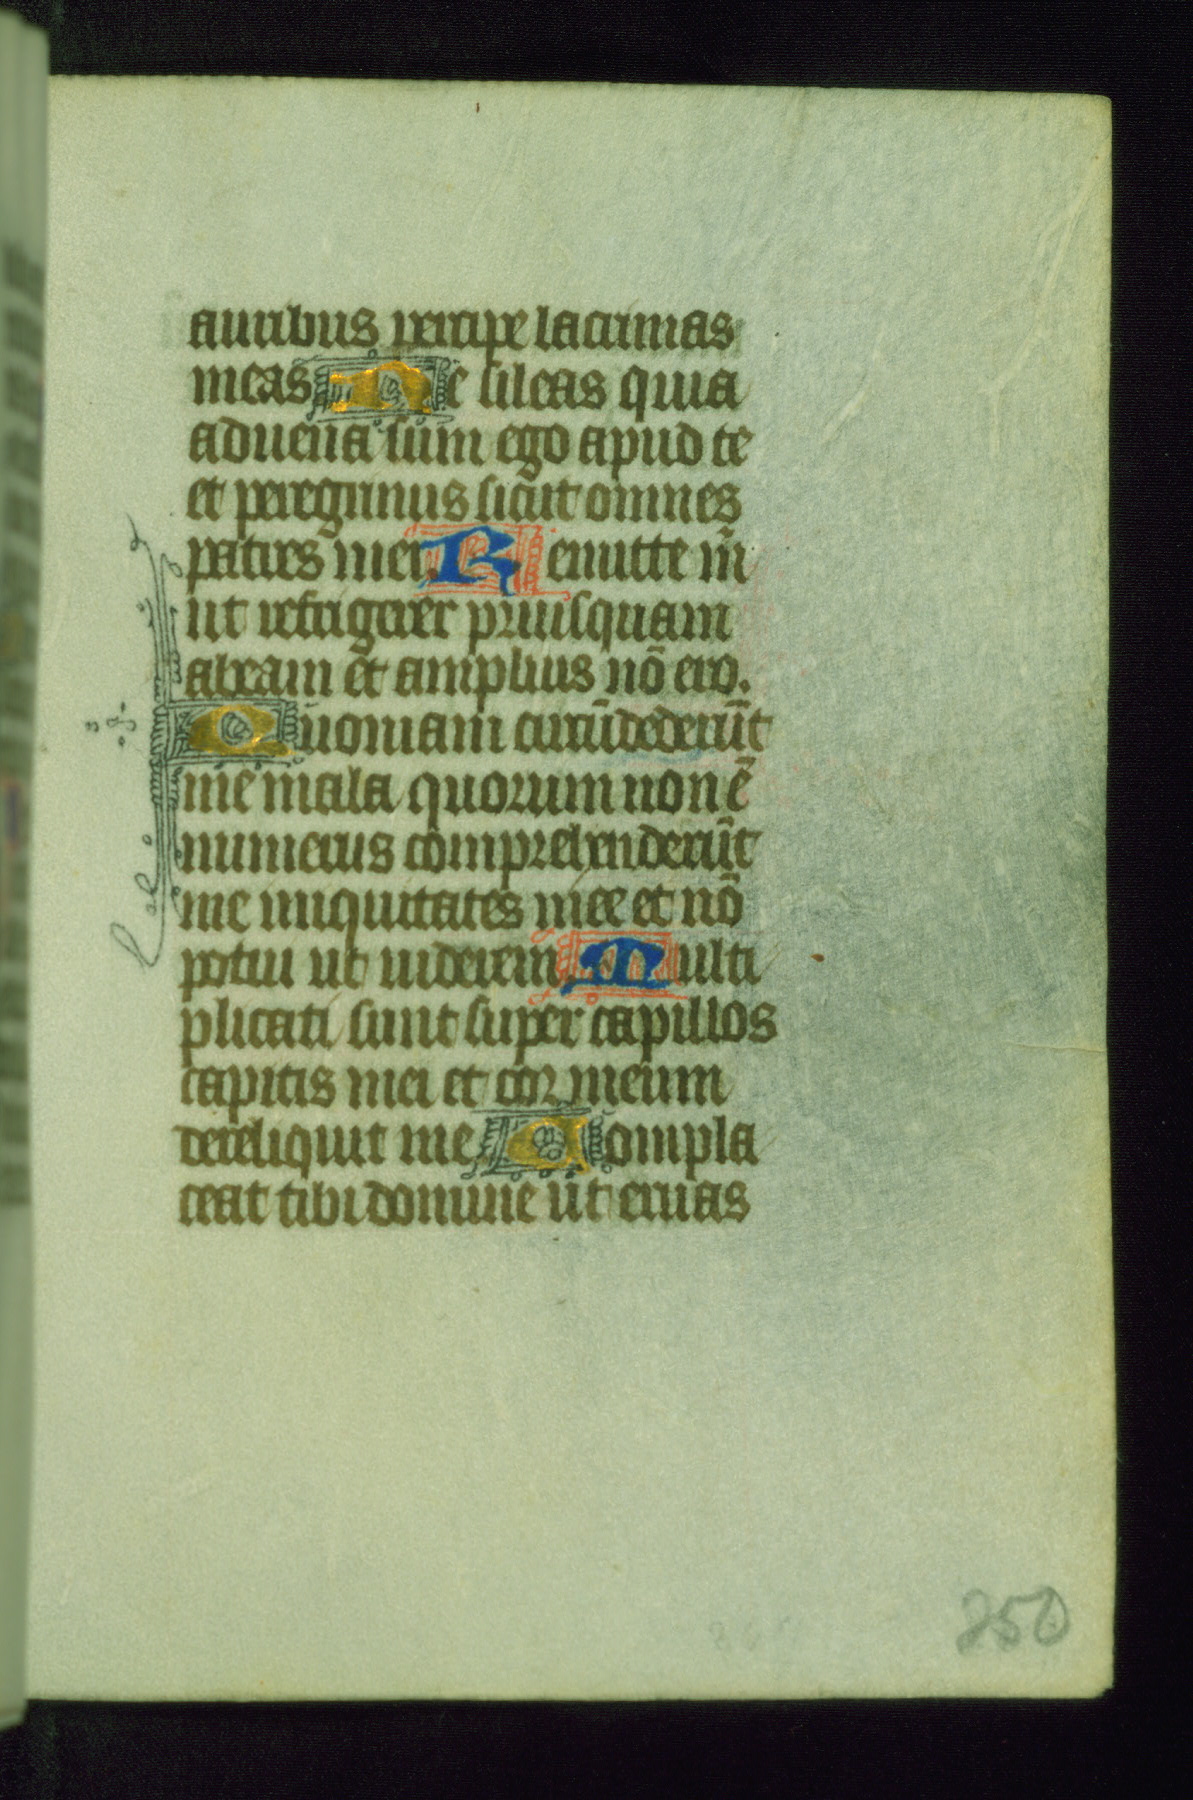 auribus percipe lacrimas
meas Ne sileas quia
aduena sum ego apud te
et peregrinus sicut omnes
patres mei. Remitte m̄
ut refrigerer priusquam
abeam et amplius nō ero.
Quoniam circūdederūt
me mala quorum non ē
numerus comprehenderūt
me iniquitates mee et nō
potui ut uiderem Multi
plicati sunt super capillos
capitis mei et cor meum
dereliquit me Compla
ceat tibi domine ut eruas
250